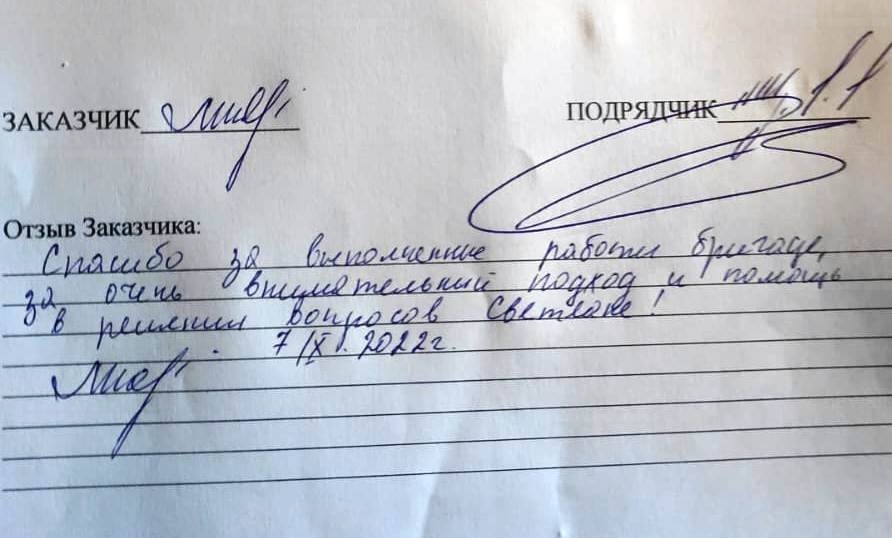 ЗАКАЗЧИК ПОДРЯДЧИК
Отзыв Заказчика:
Спасибо за выполнение работы бригаде,
за очень внимательный подход и помощь
в решении вопросов Светлане!
7/IX. 2022г.